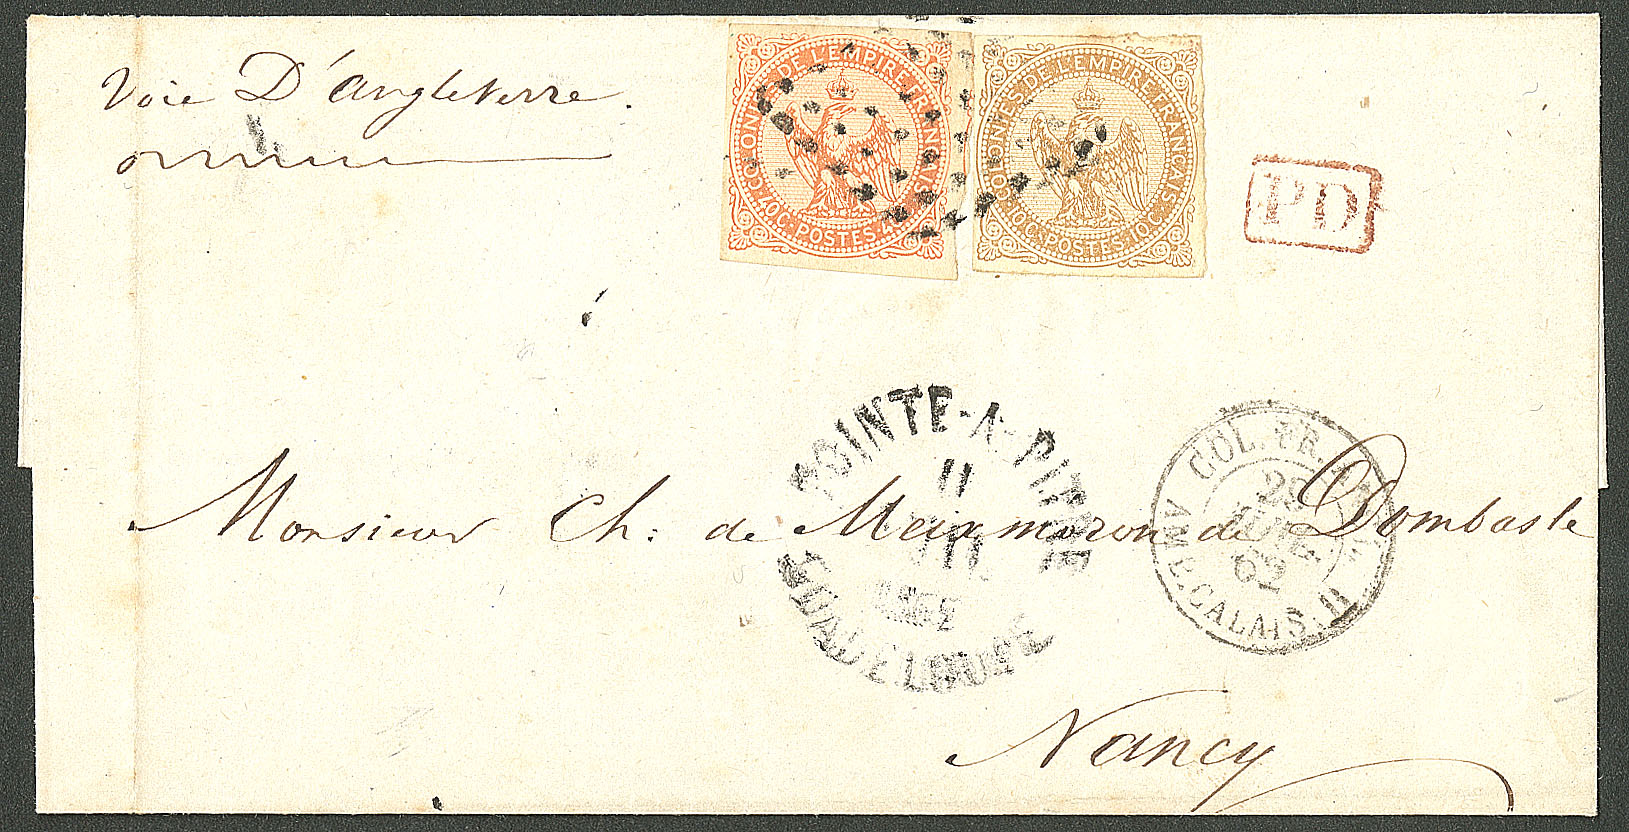 Voie D'angleterre.
COLONIES DE L'EMPIRE FRANÇAIS
40C. POSTES 40C.
COLONIES DE L'EMPIRE FRANÇAIS
10C. POSTES 10C.
PD
POINTE-A-PITRE
11
1862
GUADELOUPE
COL. FR.
AMB. CALAIS. II
Monsieur Ch: de Meixmoron de Dombasle
Nancy